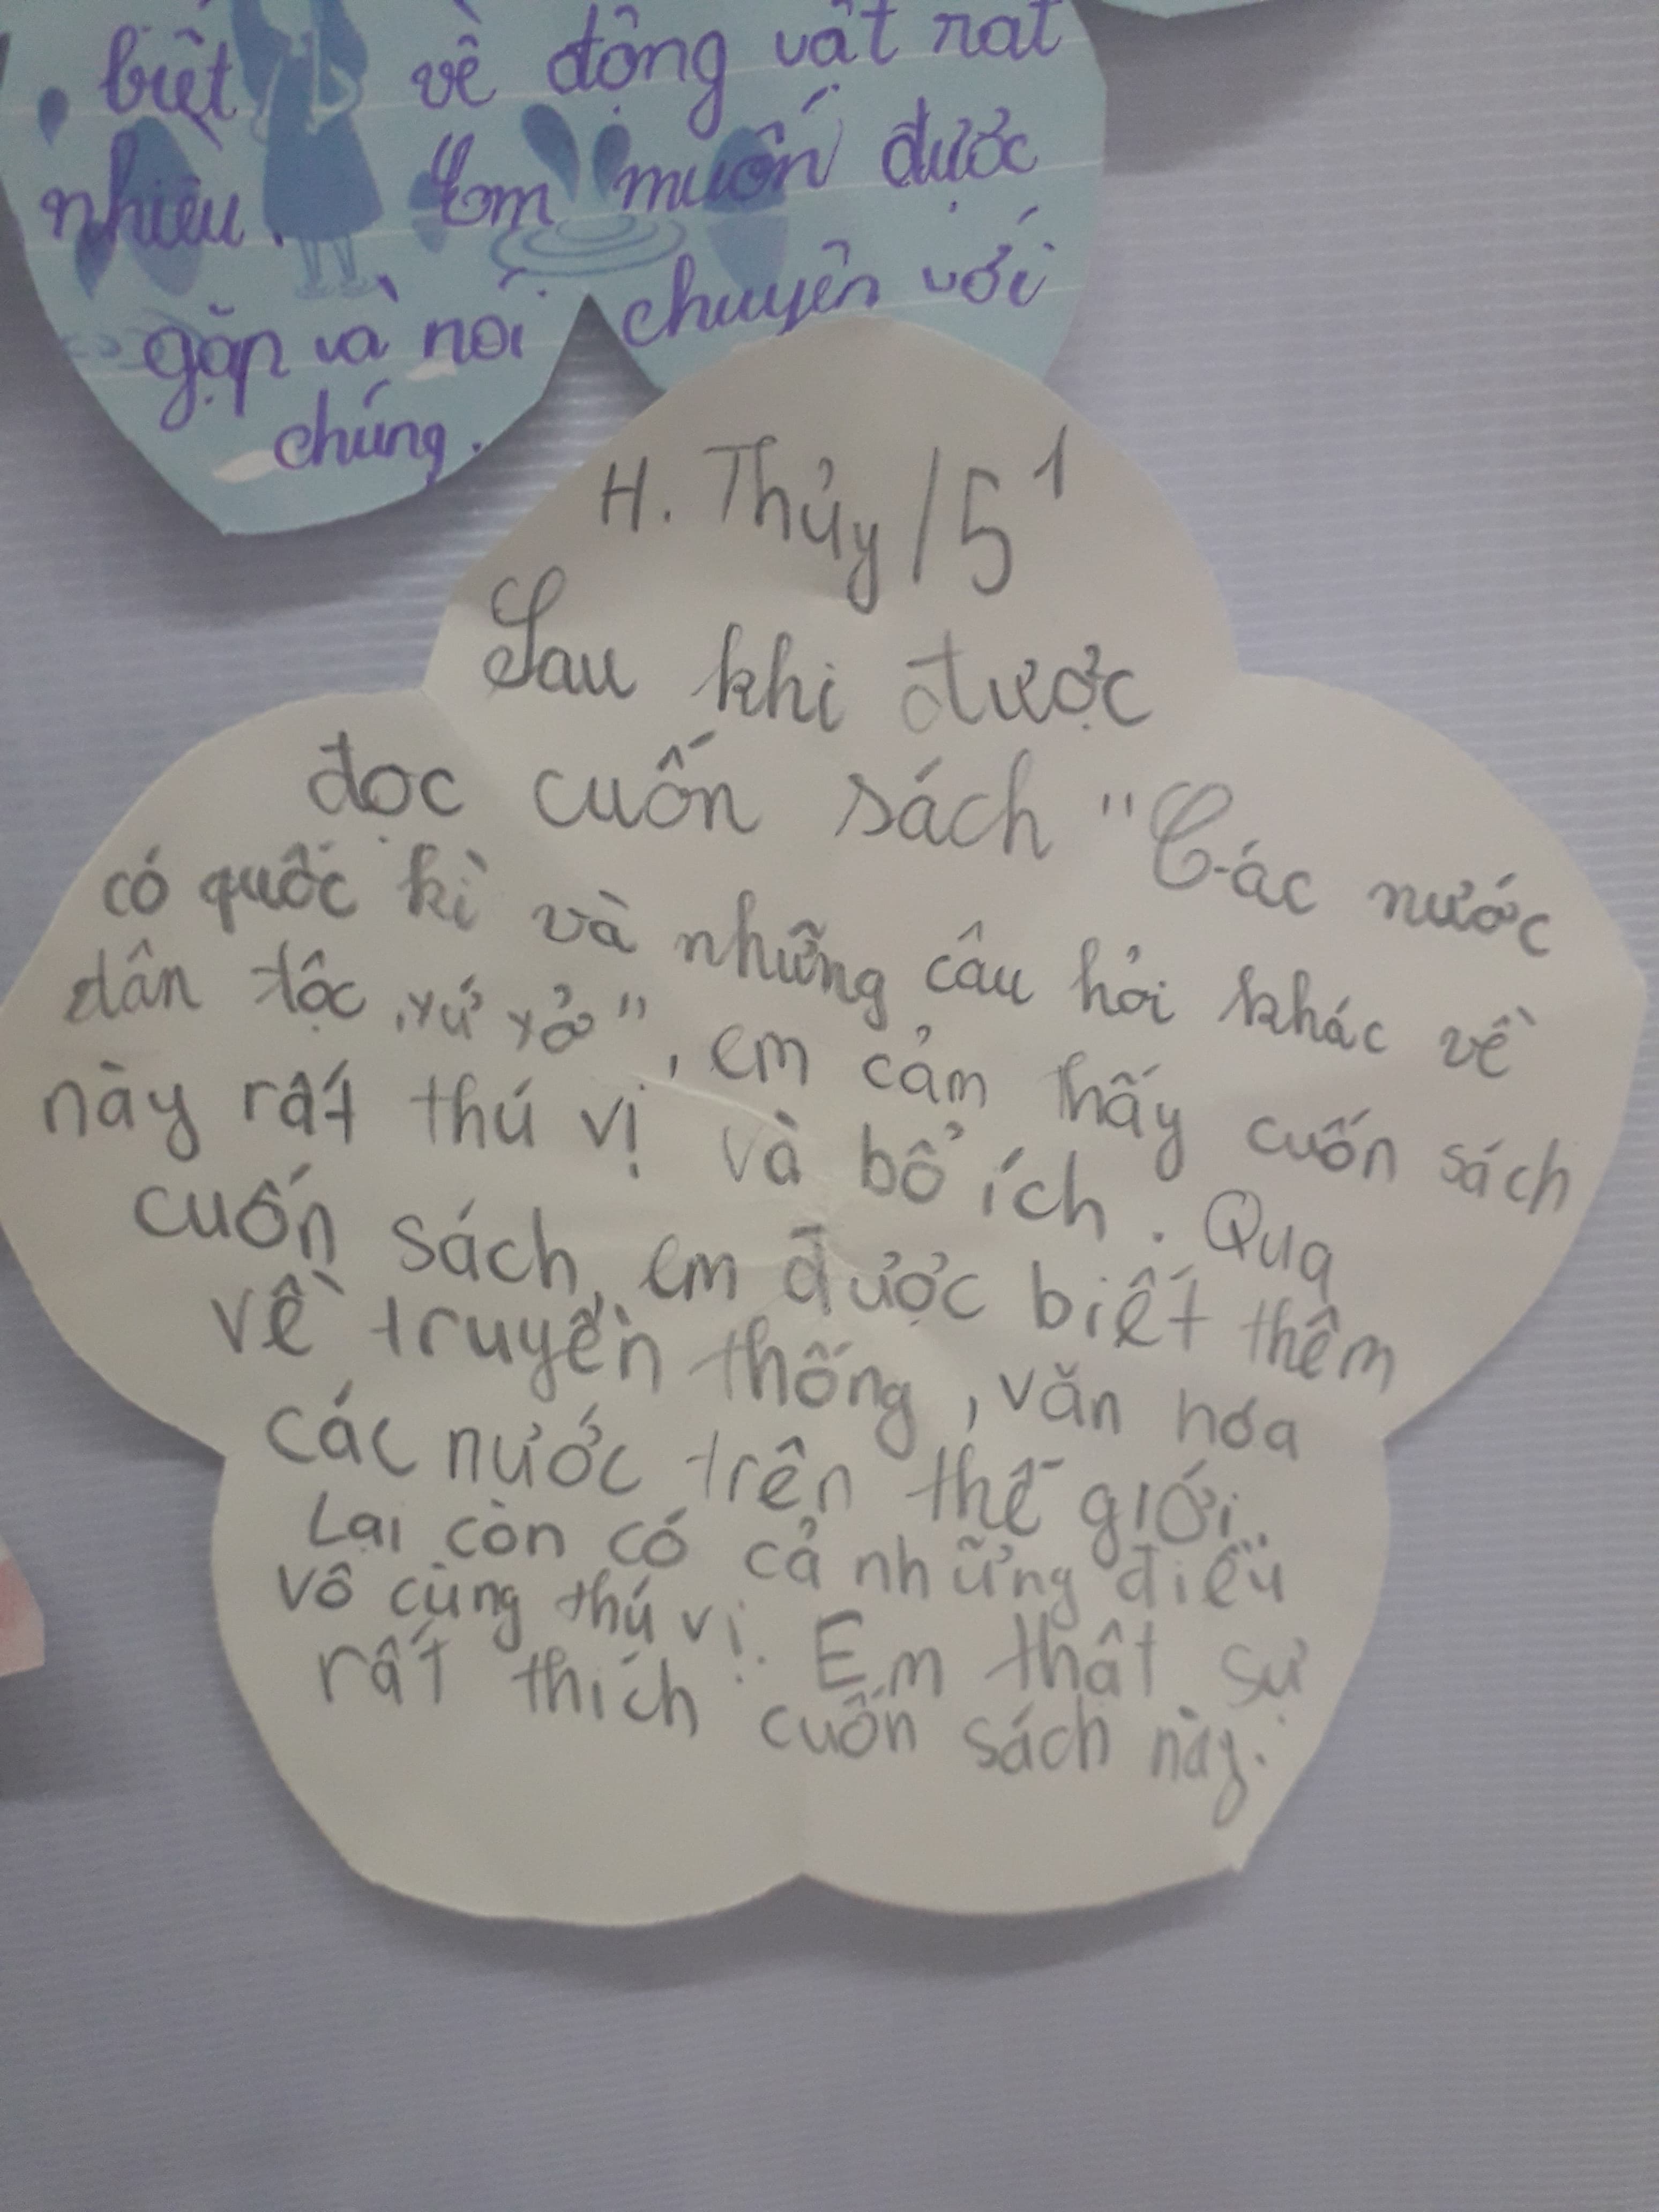 biết về động vật rất
nhiều. Em muốn được
gặp và nói chuyện với
chúng.
H. Thủy / 5¹
Sau khi được
đọc cuốn sách "Các nước
có quốc kì và những câu hỏi khác về
dân tộc, xứ xở", em cảm thấy cuốn sách
này rất thú vị và bổ ích. Qua
cuốn sách, em được biết thêm
về truyền thống, văn hóa
các nước trên thế giới.
Lại còn có cả những điều
vô cùng thú vị. Em thật sự
rất thích cuốn sách này.